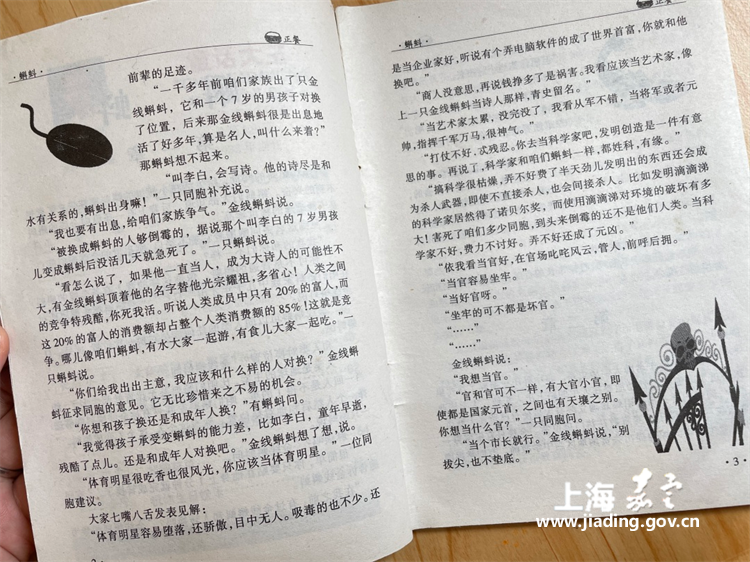 ·蝌蚪·
正餐
前辈的足迹。
“一千多年前咱们家族出了只金
线蝌蚪，它和一个7岁的男孩子对换
了位置，后来那金线蝌蚪很是出息地
活了好多年，算是名人，叫什么来着？”
那蝌蚪想不起来。
“叫李白，会写诗。他的诗尽是和
水有关系的，蝌蚪出身嘛！”一只同胞补充说。
“我也要有出息，给咱们家族争气。”金线蝌蚪说。
“被换成蝌蚪的人够倒霉的，据说那个叫李白的7岁男孩
儿变成蝌蚪后没活几天就急死了。”一只蝌蚪说。
“看怎么说了，如果他一直当人，成为大诗人的可能性不
大，有金线蝌蚪顶着他的名字替他光宗耀祖，多省心！人类之间
的竞争特残酷，你死我活。听说人类成员中只有20%的富人，而
这20%的富人的消费额却占整个人类消费额的85%！这就是竞
争。哪儿像咱们蝌蚪，有水大家一起游，有食儿大家一起吃。”一
只蝌蚪说。
“你们给我出出主意，我应该和什么样的人对换？”金线蝌
蚪征求同胞的意见。它无比珍惜来之不易的机会。
“你想和孩子换还是和成年人换？”有蝌蚪问。
“我觉得孩子承受变蝌蚪的能力差，比如李白，童年早逝，
残酷了点儿。还是和成年人对换吧。”金线蝌蚪想了想，说。
“体育明星很吃香也很风光，你应该当体育明星。”一位同
胞建议。
大家七嘴八舌发表见解：
“体育明星容易堕落，还骄傲，目中无人。吸毒的也不少。还
·蝌蚪·
正餐
是当企业家好，听说有个弄电脑软件的成了世界首富，你就和他
换吧。”
“商人没意思，再说钱挣多了是祸害。我看应该当艺术家，像
上一只金线蝌蚪当诗人那样，青史留名。”
“当艺术家太累，没完没了，我看从军不错，当将军或者元
帅，指挥千军万马，很神气。”
“打仗不好，忒残忍。你去当科学家吧，发明创造是一件有意
思的事。再说了，科学家和咱们蝌蚪一样，都姓科，有缘。”
“搞科学很枯燥，弄不好费了半天劲儿发明出的东西还会成
为杀人武器，即使不直接杀人，也会间接杀人。比如发明滴滴涕
的科学家居然得了诺贝尔奖，而使用滴滴涕对环境的破坏有多
大！害死了咱们多少同胞，到头来倒霉的还不是他们人类。当科
学家不好，费力不讨好。弄不好还成了元凶。”
“依我看当官好，在官场叱咤风云，管人，前呼后拥。”
“当官容易坐牢。”
“当好官呀。”
“坐牢的可不都是坏官。”
“……”
“……”
金线蝌蚪说：
“我想当官。”
“官和官可不一样，有大官小官，即
使都是国家元首，之间也有天壤之别。
你想当什么官？”一只同胞问。
“当个市长就行。”金线蝌蚪说，“别
拔尖，也不垫底。”
·3·
上海嘉定
www.jiading.gov.cn